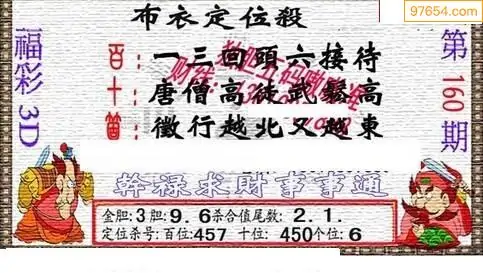 97654.com
布衣定位殺
福彩3D
第160期
百：一三回頭六接待
十：唐僧高徒武藝高
個：微行越北又越東
幹祿求財事事通
金胆:3胆:9.6杀合值尾数: 2.1.
定位杀号:百位:457 十位: 450个位:6